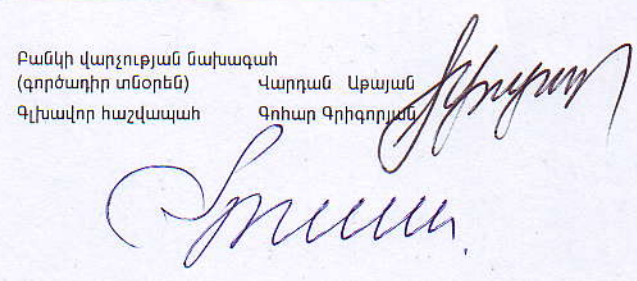 Բանկի վարչության նախագահ
(գործադիր տնօրեն) Վարդան Աթայան
Գլխավոր հաշվապահ Գոհար Գրիգորյան